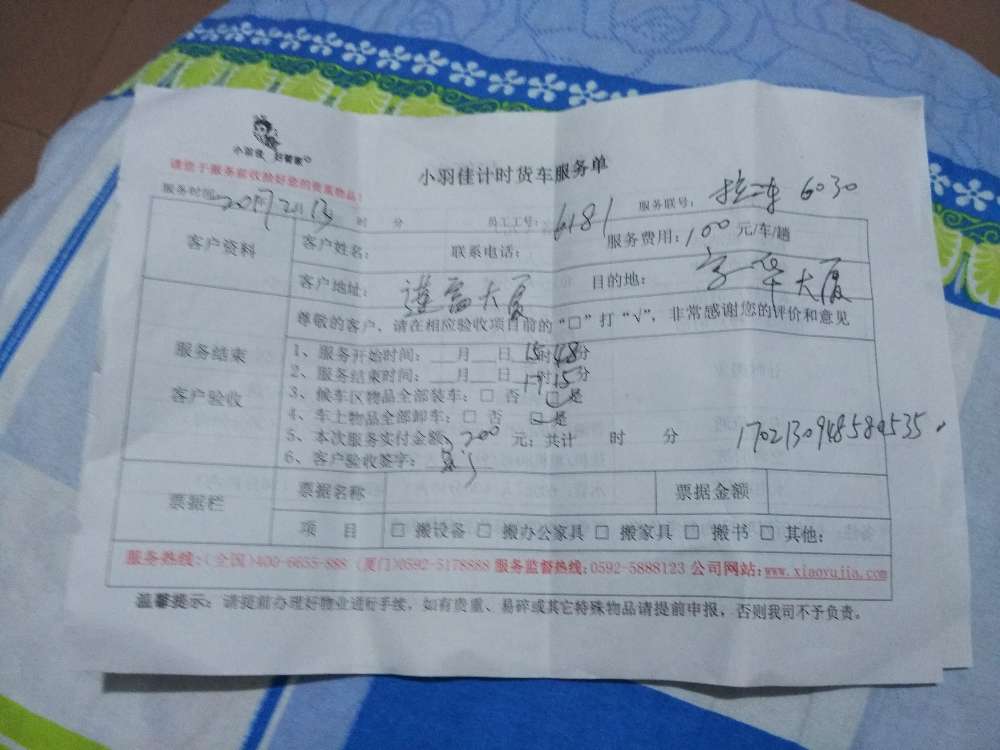 小羽佳 好管家
小羽佳计时货车服务单
请您于服务前收捡好您的贵重物品!
服务时间: 2017 2 13 时 分 员工工号: 6181 服务联号: 拉车 6030
客户资料
客户姓名: 联系电话: 服务费用: 100 元/车/趟
客户地址: 莲富大厦 目的地: 大厦
尊敬的客户,请在相应验收项目前的“□”打“√”,非常感谢您的评价和意见
服务结束
客户验收
1、服务开始时间: __月__日 15时48分
2、服务结束时间: __月__日 17 15分
3、候车区物品全部装车: □ 否 □ 是
4、车上物品全部卸车: □ 否 □ 是
5、本次服务实付金额: 200 元; 共计 时 分 170213094858
6、客户验收签字:
票据栏
票据名称 票据金额
项 目 □ 搬设备 □ 搬办公家具 □ 搬家具 □ 搬书 □ 其他:
服务热线:(全国)400-6655-888 (厦门)0592-5178888 服务监督热线:0592-5888123 公司网站:www.xiaoyujia.com
温馨提示: 请提前办理好物业进行手续,如有贵重、易碎或其它特殊物品请提前申报,否则我司不予负责。